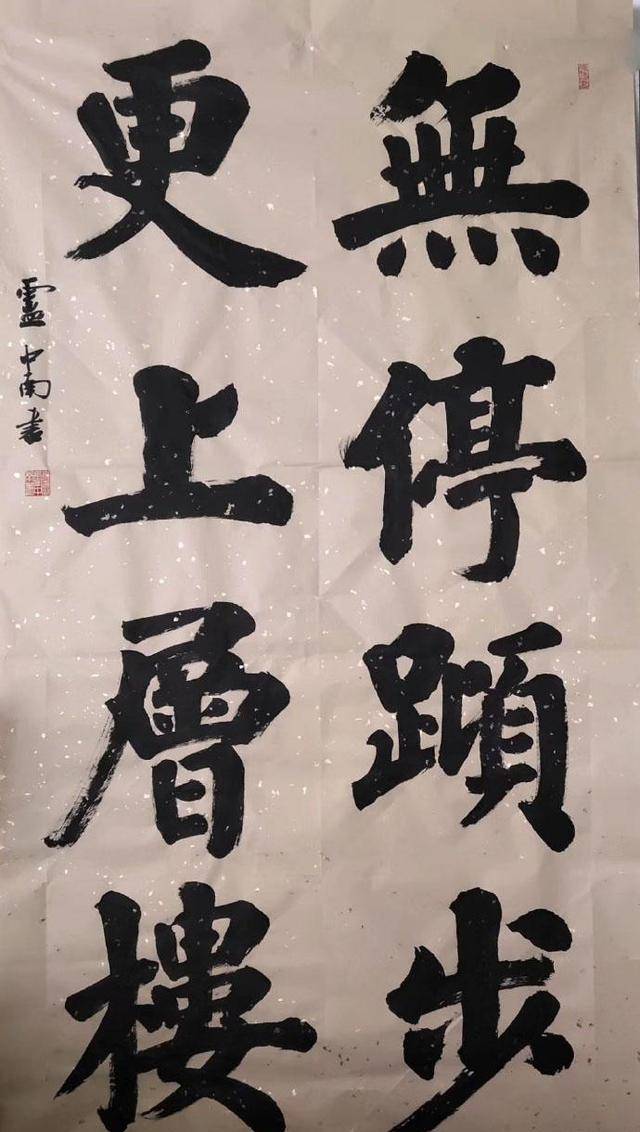 無停蹞步
更上層樓
盧中南書